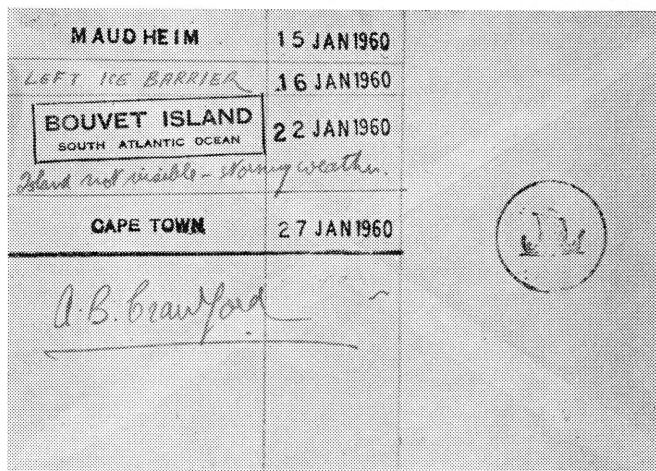 MAUDHEIM 15 JAN 1960
LEFT ICE BARRIER 16 JAN 1960
BOUVET ISLAND 22 JAN 1960
SOUTH ATLANTIC OCEAN
Island not visible - stormy weather.
CAPE TOWN 27 JAN 1960
A.B. Crawford